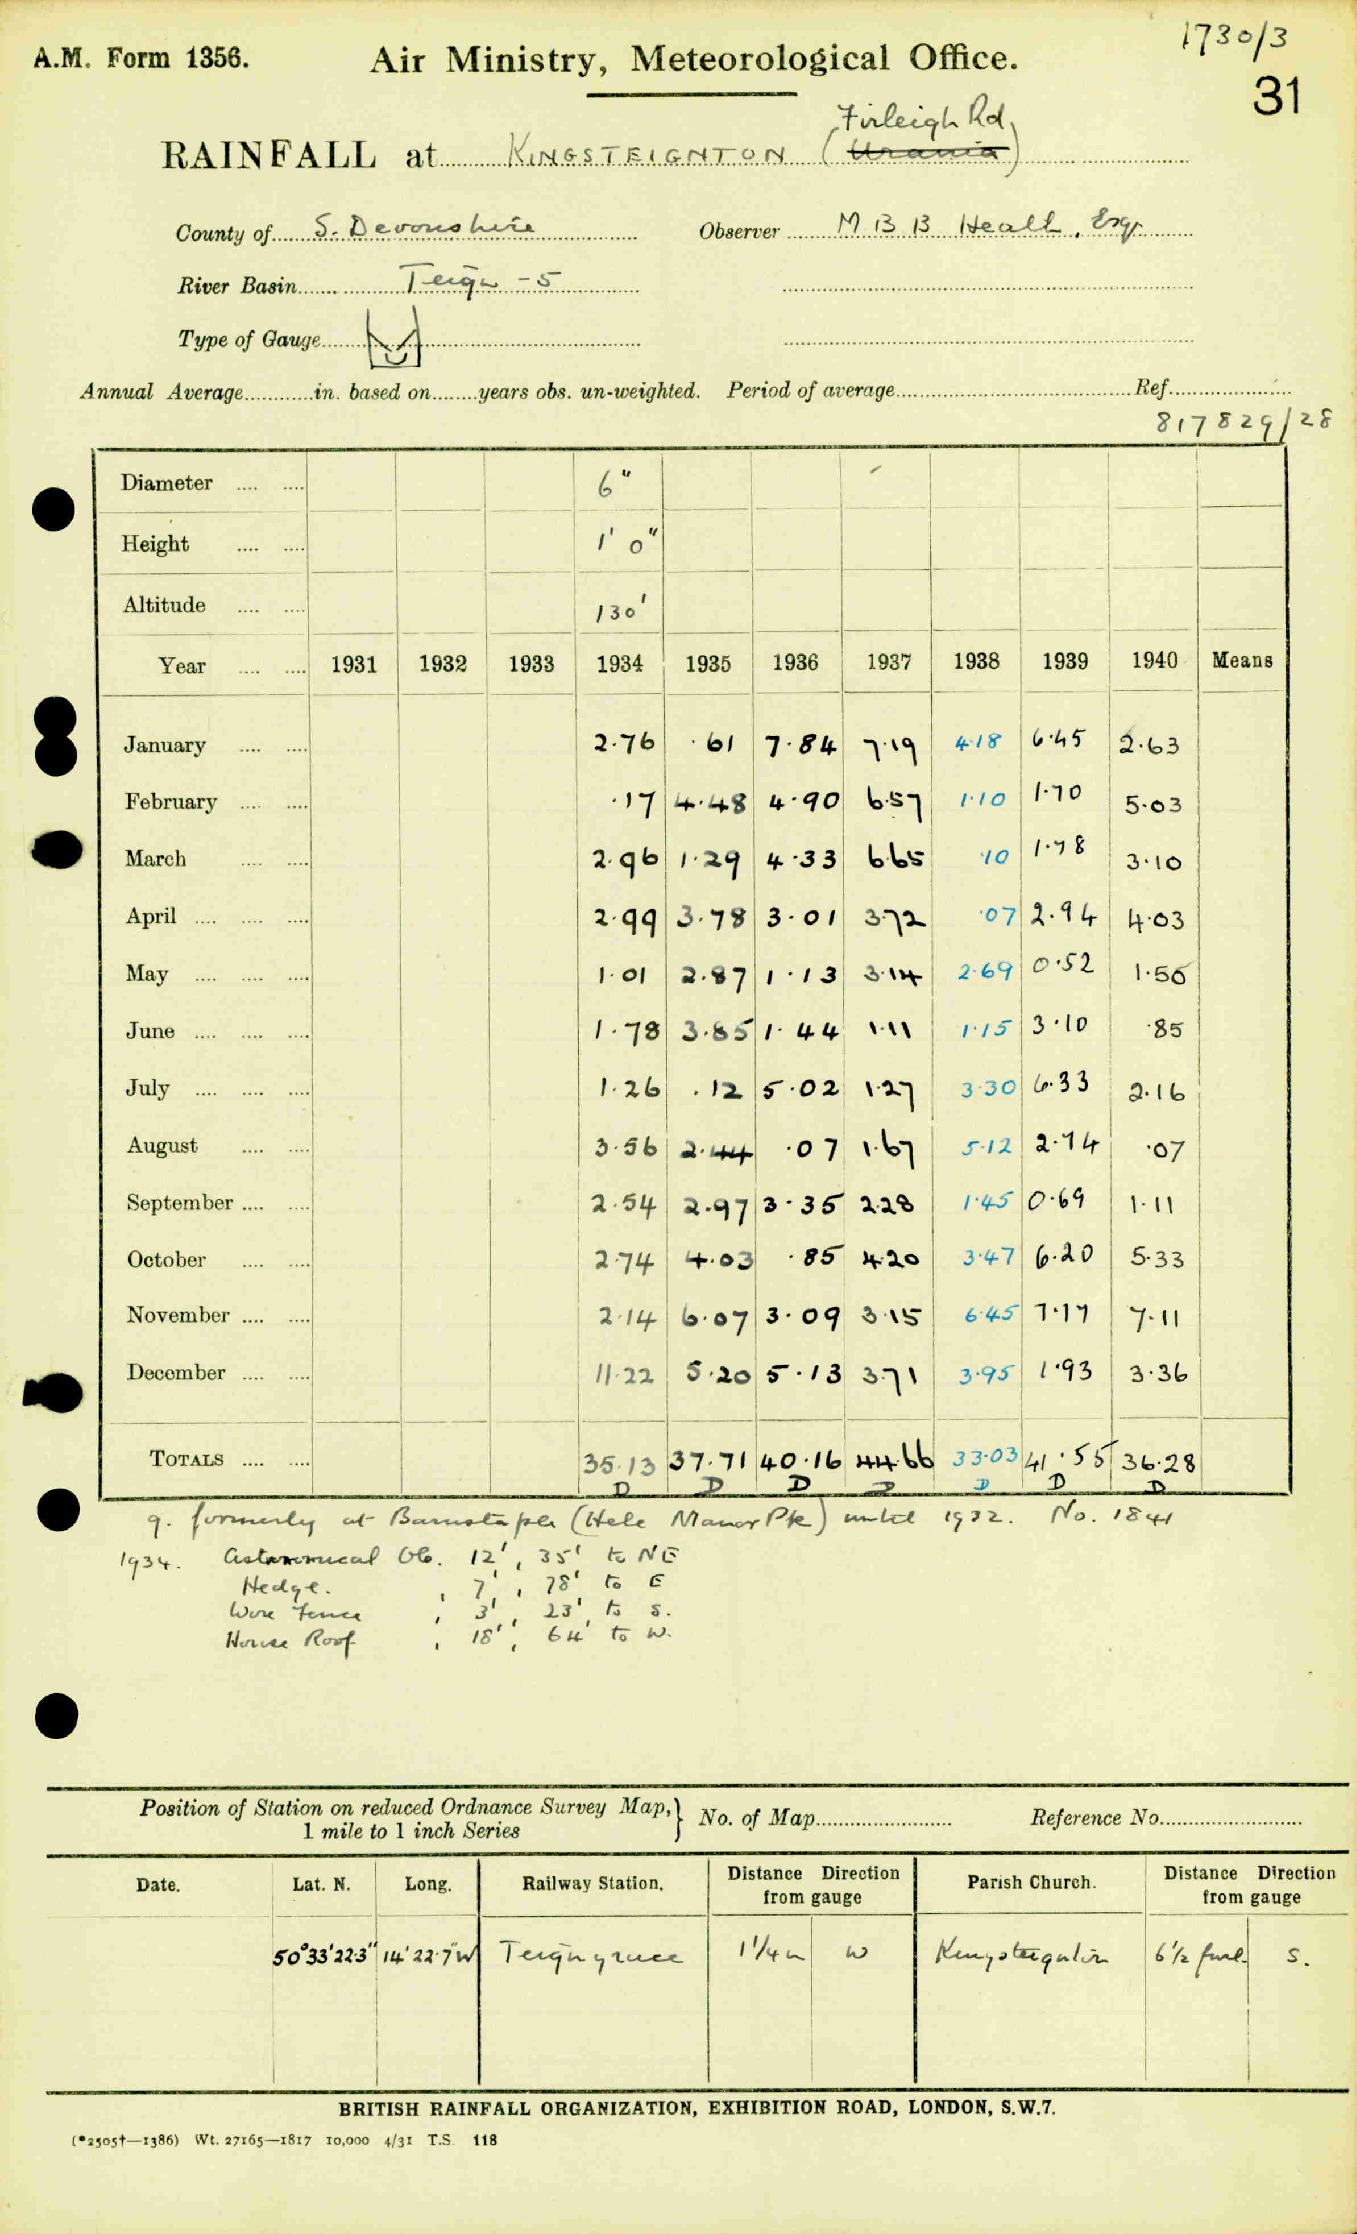 1730/3
A.M. Form 1356. Air Ministry, Meteorological Office.
31
Firleigh Rd
RAINFALL at KINGSTEIGNTON (Urania)
County of S. Devonshire Observer M B B Heath, Esq.
River Basin Teign - 5
Type of Gauge
Annual Average in. based on years obs. un-weighted. Period of average Ref.
817829/28
Diameter 6"
Height 1' 0"
Altitude 130'
Year 1931 1932 1933 1934 1935 1936 1937 1938 1939 1940 Means
January 2.76 .61 7.84 7.19 4.18 6.45 2.63
February .17 4.48 4.90 6.57 1.10 1.70 5.03
March 2.96 1.29 4.33 6.65 .10 1.78 3.10
April 2.99 3.78 3.01 3.72 .07 2.94 4.03
May 1.01 2.87 1.13 3.14 2.69 0.52 1.50
June 1.78 3.85 1.44 1.11 1.15 3.10 .85
July 1.26 .12 5.02 1.27 3.30 6.33 2.16
August 3.56 2.44 .07 1.67 5.12 2.74 .07
September 2.54 2.97 3.35 2.28 1.45 0.69 1.11
October 2.74 4.03 .85 4.20 3.47 6.20 5.33
November 2.14 6.07 3.09 3.15 6.45 7.17 7.11
December 11.22 5.20 5.13 3.71 3.95 1.93 3.36
TOTALS 35.13 37.71 40.16 44.66 33.03 41.55 36.28
D D D D D D D
g. formerly at Barnstaple (Hele Manor Pk) until 1932. No. 1841
1934. Astronomical Ob. 12', 35' to NE
Hedge. , 7', 78' to E
Wire Fence , 3', 23' to S.
House Roof , 18', 64' to W.
Position of Station on reduced Ordnance Survey Map, 1 mile to 1 inch Series } No. of Map Reference No.
Date. Lat. N. Long. Railway Station. Distance Direction from gauge Parish Church. Distance Direction from gauge
50°33'22.3" 14'22.7"W Teigngrace 1 1/4 m W Kingsteignton 6 1/2 furl. S.
BRITISH RAINFALL ORGANIZATION, EXHIBITION ROAD, LONDON, S.W.7.
(*2505†—1386) Wt. 27165—1817 10,000 4/31 T.S. 118